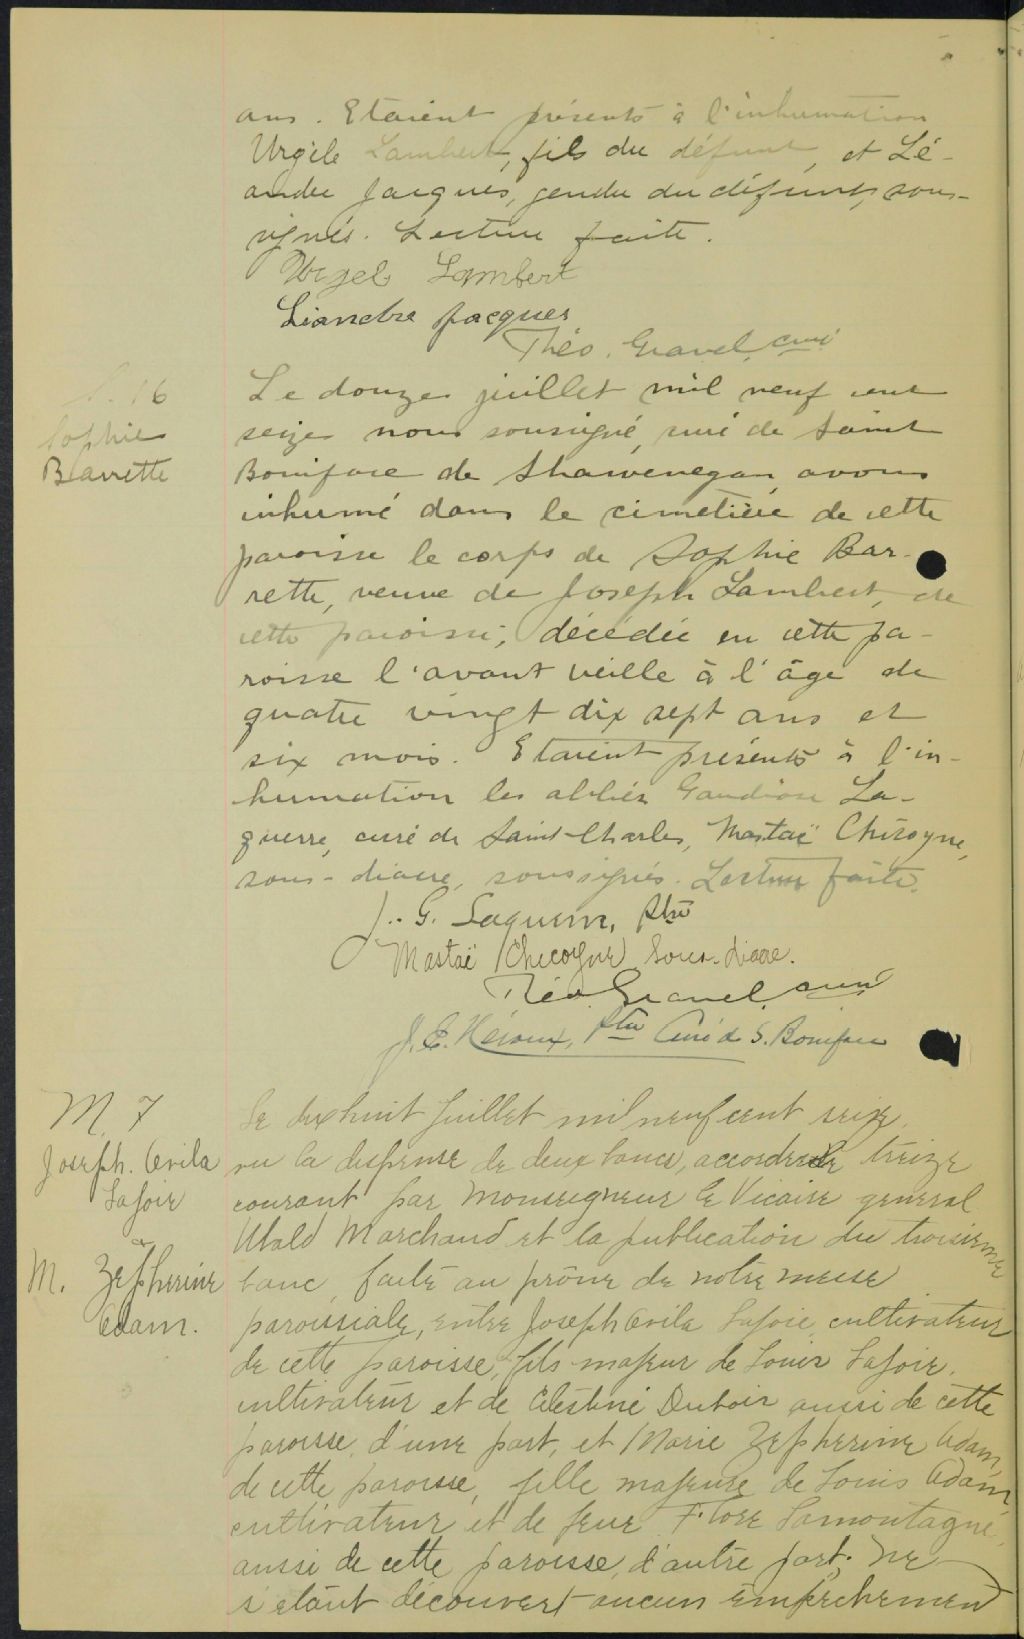 ans. Etaient présents à l'inhumation
Urgèle Lambert, fils du défunt, et Lé-
andre Jacques, gendre du défunt, sous-
signés. Lecture faite.
Urgel Lambert
Liandre Jacques
Théo. Gravel, curé
S. 16
Sophie
Barrette
Le douze juillet mil neuf cent
seize nous soussigné, curé de Saint
Boniface de Shawenegan, avons
inhumé dans le cimetière de cette
paroisse le corps de Sophie Bar-
rette, veuve de Joseph Lambert, de
cette paroisse, décédée en cette pa-
roisse l'avant veille à l'âge de
quatre vingt dix sept ans et
six mois. Etaient présents à l'in-
humation les abbés Gaudiose La-
querre, curé de Saint-Charles, Mastaï Chicoyne,
sous-diacre, soussignés. Lecture faite.
J. G. Laquerre, ptre
Mastaï Chicoyne Sous-diacre.
Théo. Gravel, curé
J. E. Héroux, Ptre Curé de S. Boniface
M. 7
Joseph. Avila
Lajoie
&
M. Zépherine
Adam.
Le dix huit Juillet mil neuf cent seize,
vu la dispense de deux bancs, accordée le treize
courant par Monseigneur le Vicaire général
Ubald Marchand et la publication du troisième
banc, faite au prône de notre messe
paroissiale, entre Joseph Avila Lajoie cultivateur
de cette paroisse, fils majeur de Louis Lajoie,
cultivateur et de Célestine Dubois aussi de cette
paroisse, d'une part, et Marie Zépherine Adam,
de cette paroisse, fille majeure de Louis Adam
cultivateur et de feue Flore Lamontagne,
aussi de cette paroisse, d'autre part; ne
s'étant découvert aucun empêchement